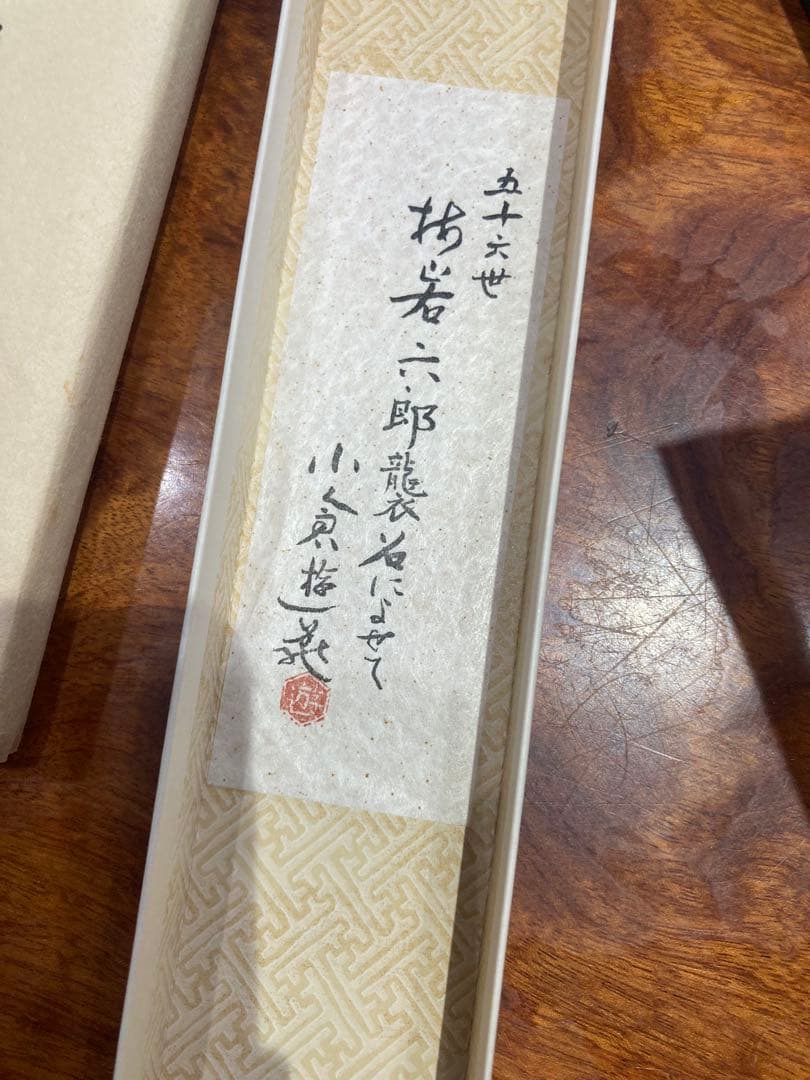 五十六世
梅若六郎襲名によせて
小倉遊亀
遊